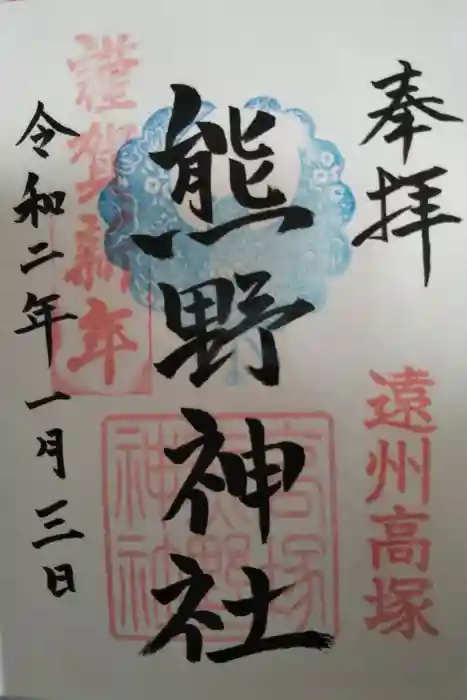 奉拝
遠州高塚
熊野神社
高塚熊野神社
謹賀新年
令和二年一月三日